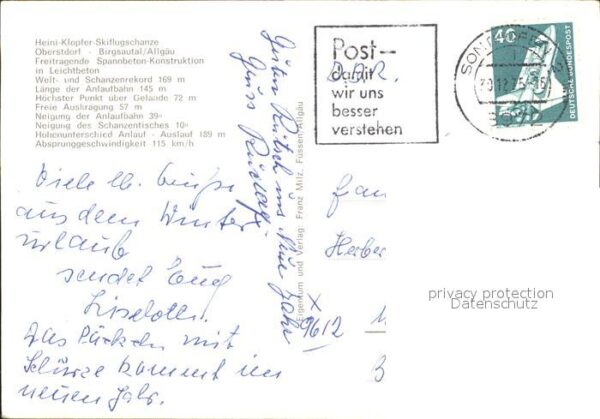 Heini-Klopfer-Skiflugschanze
Oberstdorf - Birgsautal/Allgäu
Freitragende Spannbeton-Konstruktion
in Leichtbeton
Welt- und Schanzenrekord 169 m
Länge der Anlaufbahn 145 m
Höchster Punkt über Gelände 72 m
Freie Auskragung 57 m
Neigung der Anlaufbahn 39°
Neigung des Schanzentisches 10°
Höhenunterschied Anlauf - Auslauf 189 m
Absprunggeschwindigkeit 115 km/h
Viele lb. Grüße
aus dem Winter
urlaub
sendet Eug
Liselotte.
Das Päckchen mit
Schürze kommt im
neuen Jahr.
Guten Rutsch ins Neue Jahr
Gruss
Eigentum und Verlag: Franz Milz, Füssen/Allgäu
Post-
damit
wir uns
besser
verstehen
D.D.R.
SONTHOFEN
40
DEUTSCHE BUNDESPOST
Herber
X
9612
privacy protection
Datenschutz